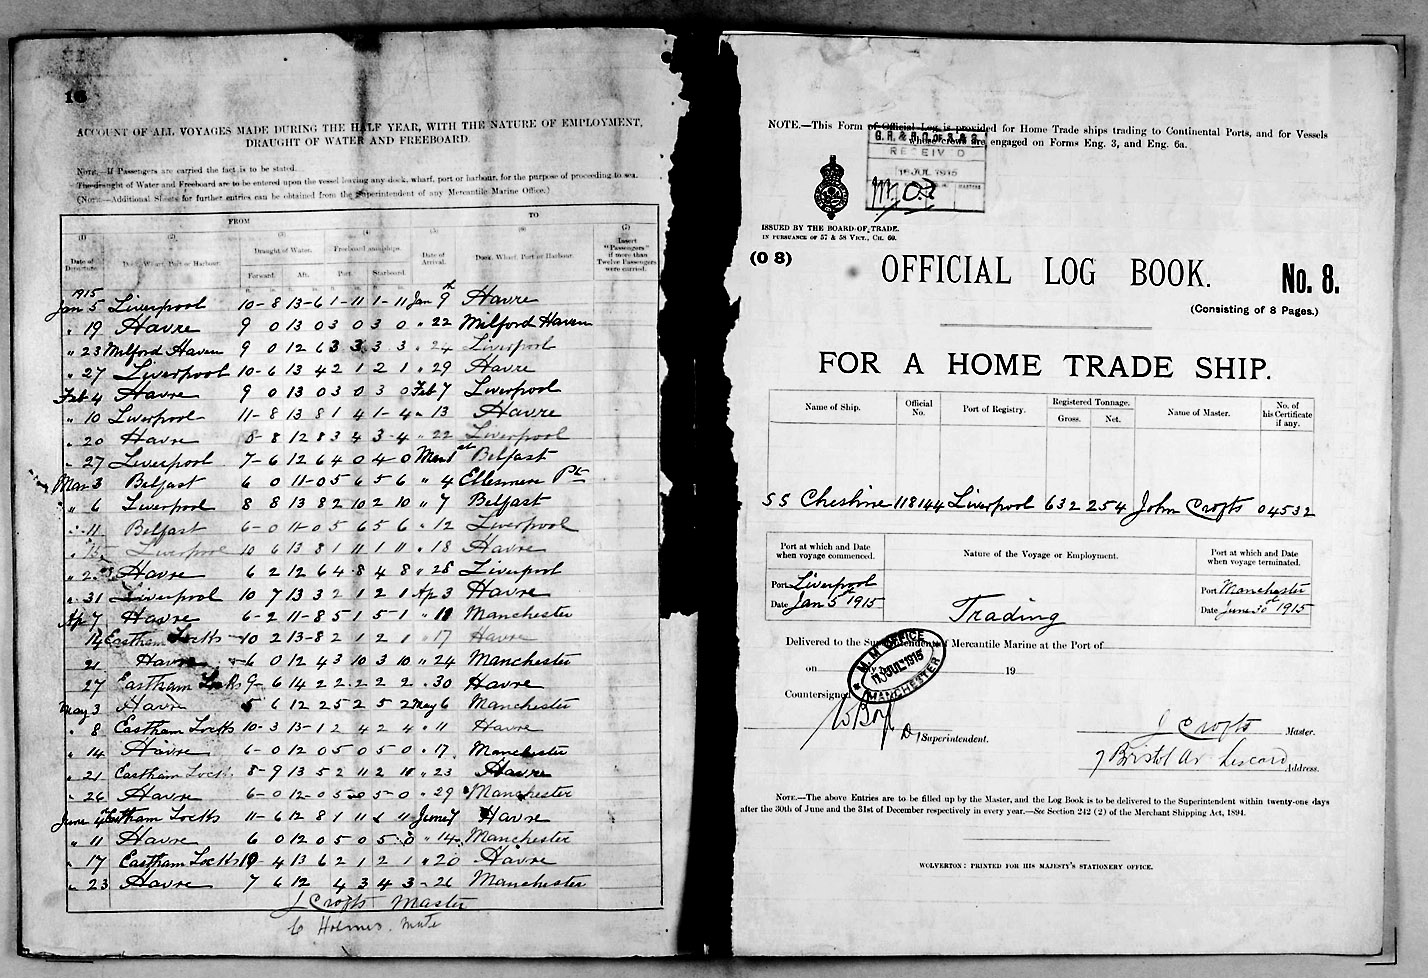 16
ACCOUNT OF ALL VOYAGES MADE DURING THE HALF YEAR, WITH THE NATURE OF EMPLOYMENT,
DRAUGHT OF WATER AND FREEBOARD.
NOTE.—If Passengers are carried the fact is to be stated.
The draught of Water and Freeboard are to be entered upon the vessel leaving any dock, wharf, port or harbour, for the purpose of proceeding to sea.
(NOTE.—Additional Sheets for further entries can be obtained from the Superintendent of any Mercantile Marine Office.)
FROM TO
(1) (2) (3) (4) (5) (6) (7)
Date of Departure. Dock, Wharf, Port or Harbour. Draught of Water. Freeboard amidships. Date of Arrival. Dock, Wharf, Port or Harbour. Insert "Passengers" if more than Twelve Passengers were carried.
Forward. Aft. Port. Starboard.
1915
Jan 5 Liverpool 10-8 13-6 1-11 1-11 Jan 9th Havre
" 19 Havre 9 0 13 0 3 0 3 0 " 22 Milford Haven
" 23 Milford Haven 9 0 12 6 3 3 3 3 " 24 Liverpool
" 27 Liverpool 10-6 13 4 2 1 2 1 " 29 Havre
Feb 4 Havre 9 0 13 0 3 0 3 0 Feb 7 Liverpool
" 10 Liverpool 11-8 13 8 1 4 1-4 " 13 Havre
" 20 Havre 8-8 12 8 3 4 3-4 " 22 Liverpool
" 27 Liverpool 7-6 12 6 4 0 4 0 Mar 1st Belfast
Mar 3 Belfast 6 0 11-0 5 6 5 6 " 4 Ellesmere Pt
" 6 Liverpool 8 8 13 8 2 10 2 10 " 7 Belfast
" 11 Belfast 6-0 11-0 5 6 5 6 " 12 Liverpool
" 15 Liverpool 10 6 13 8 1 11 1 11 " 18 Havre
" 23 Havre 6 2 12 6 4-8 4 8 " 25 Liverpool
" 31 Liverpool 10 7 13 3 2 1 2 1 Ap 3 Havre
Ap 7 Havre 6-2 11-8 5 1 5-1 " 11 Manchester
14 Eastham Locks 10 2 13-8 2 1 2 1 " 17 Havre
21 Havre 6 0 12 4 3 10 3 10 " 24 Manchester
27 Eastham Locks 9-6 14 2 2 2 2 2 " 30 Havre
May 3 Havre 5 6 12 2 5 2 5 2 May 6 Manchester
" 8 Eastham Locks 10-3 13-1 2 4 2 4 " 11 Havre
" 14 Havre 6-0 12 0 5 0 5-0 " 17 Manchester
" 21 Eastham Locks 8-9 13 5 2 11 2 11 " 23 Havre
" 26 Havre 6-0 12-0 5 0 5-0 " 29 Manchester
June 4 Eastham Locks 11-6 12 8 1 11 1 11 June 7 Havre
" 11 Havre 6 0 12 0 5 0 5 0 " 14 Manchester
" 17 Eastham Locks 10-4 13 6 2 1 2 1 " 20 Havre
" 23 Havre 7 6 12 4 3 4 3 - 26 Manchester
J Crofts Master
C Holmes. Mate
NOTE.—This Form of Official Log is provided for Home Trade ships trading to Continental Ports, and for Vessels
whose crews are engaged on Forms Eng. 3, and Eng. 6a.
RECEIVED
16 JUL 1915
ISSUED BY THE BOARD OF TRADE.
IN PURSUANCE OF 57 & 58 VICT., CH. 60.
(O 8)
OFFICIAL LOG BOOK. No. 8.
(Consisting of 8 Pages.)
FOR A HOME TRADE SHIP.
Name of Ship. Official No. Port of Registry. Registered Tonnage. Gross. Net. Name of Master. No. of his Certificate if any.
SS Cheshire 118144 Liverpool 632 254 John Crofts 04532
Port at which and Date when voyage commenced. Nature of the Voyage or Employment. Port at which and Date when voyage terminated.
Port Liverpool Port Manchester
Date Jan 5th 1915 Trading Date June 30th 1915
Delivered to the Superintendent of Mercantile Marine at the Port of
on 19
M.M. OFFICE
JUL 1915
MANCHESTER
Countersigned
W Boyl
D, Superintendent.
J Crofts Master.
7 Bristol Av Liscard Address.
NOTE.—The above Entries are to be filled up by the Master, and the Log Book is to be delivered to the Superintendent within twenty-one days
after the 30th of June and the 31st of December respectively in every year.—See Section 242 (2) of the Merchant Shipping Act, 1894.
WOLVERTON: PRINTED FOR HIS MAJESTY'S STATIONERY OFFICE.